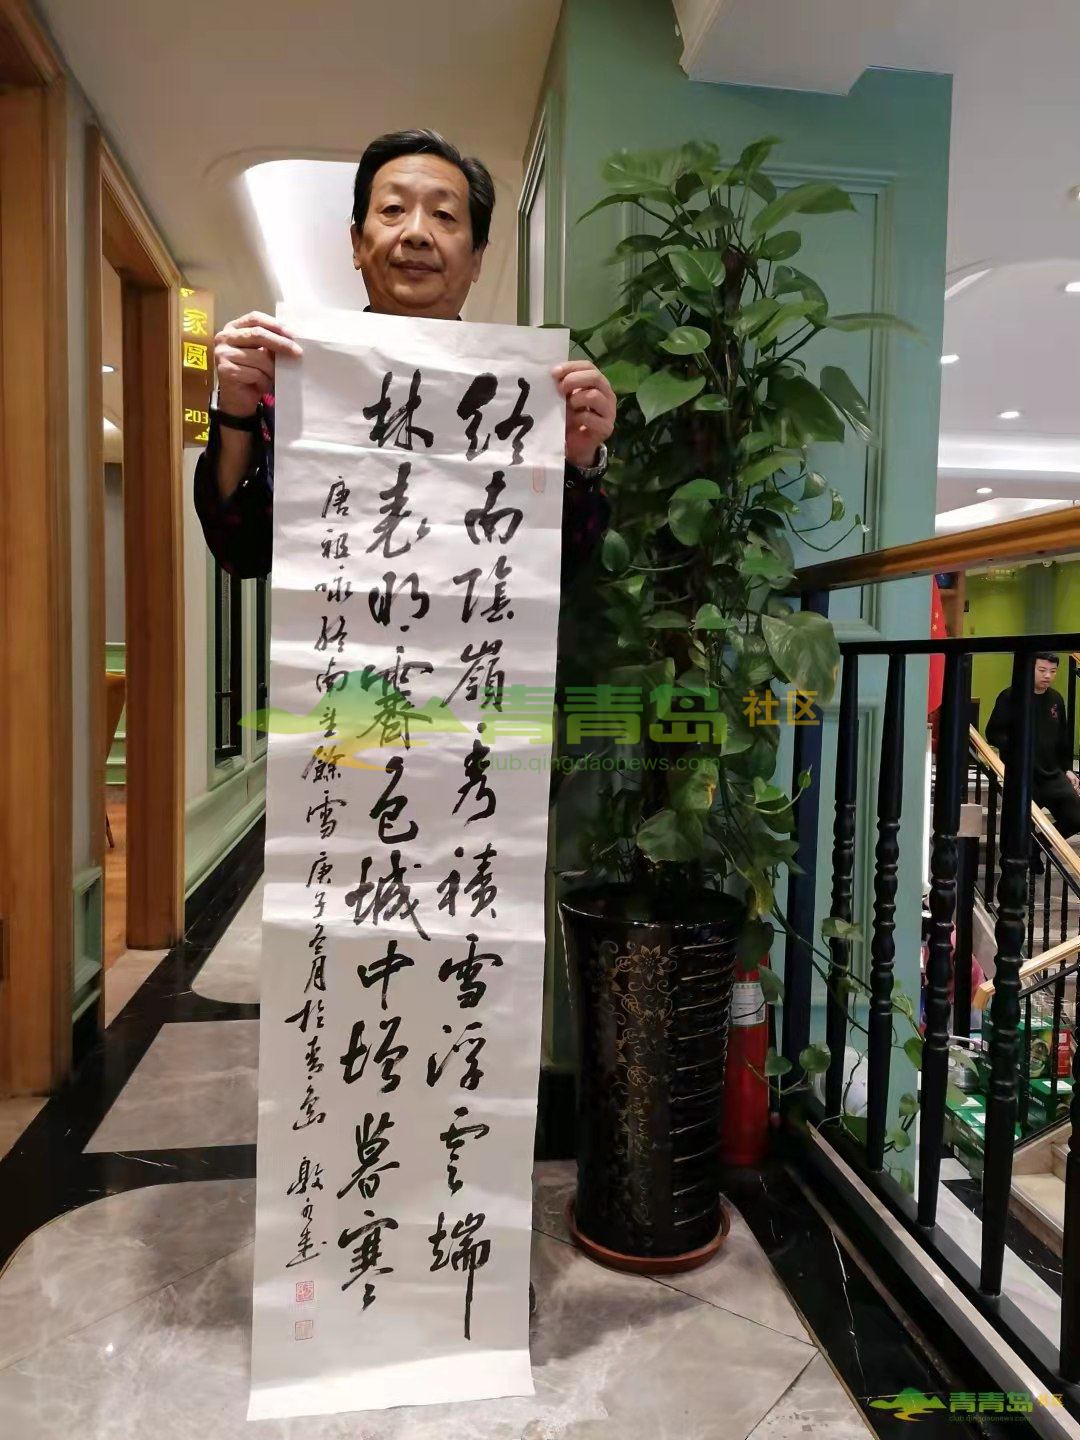 终南阴嶺秀積雪浮雲端
林表明霽色城中增暮寒
唐祖咏终南望餘雪庚子冬月於青島
家圆
203
青青岛 社区
club.qingdaonews.com
青青岛 社区
club.qingdaonews.com